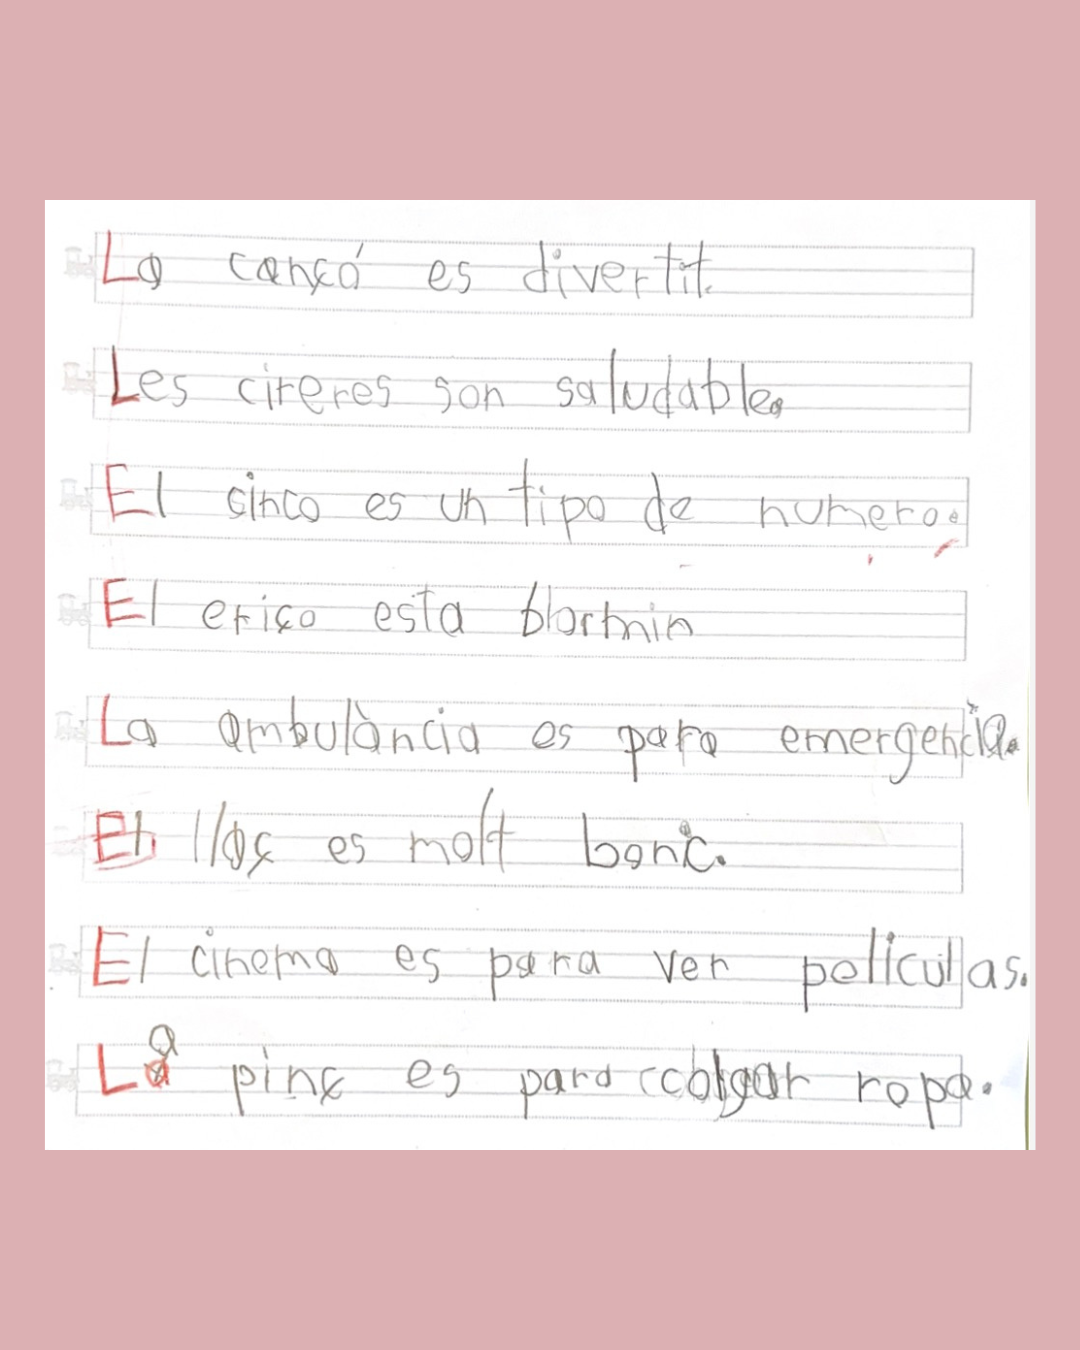 La cançó es divertit.
Les cireres son saludable.
El cinco es un tipo de numero.
El eriço esta
La ambulància es para emergencia.
El llaç es molt bonic.
El cinema es para ver peliculas.
La pinç es para colgar ropa.